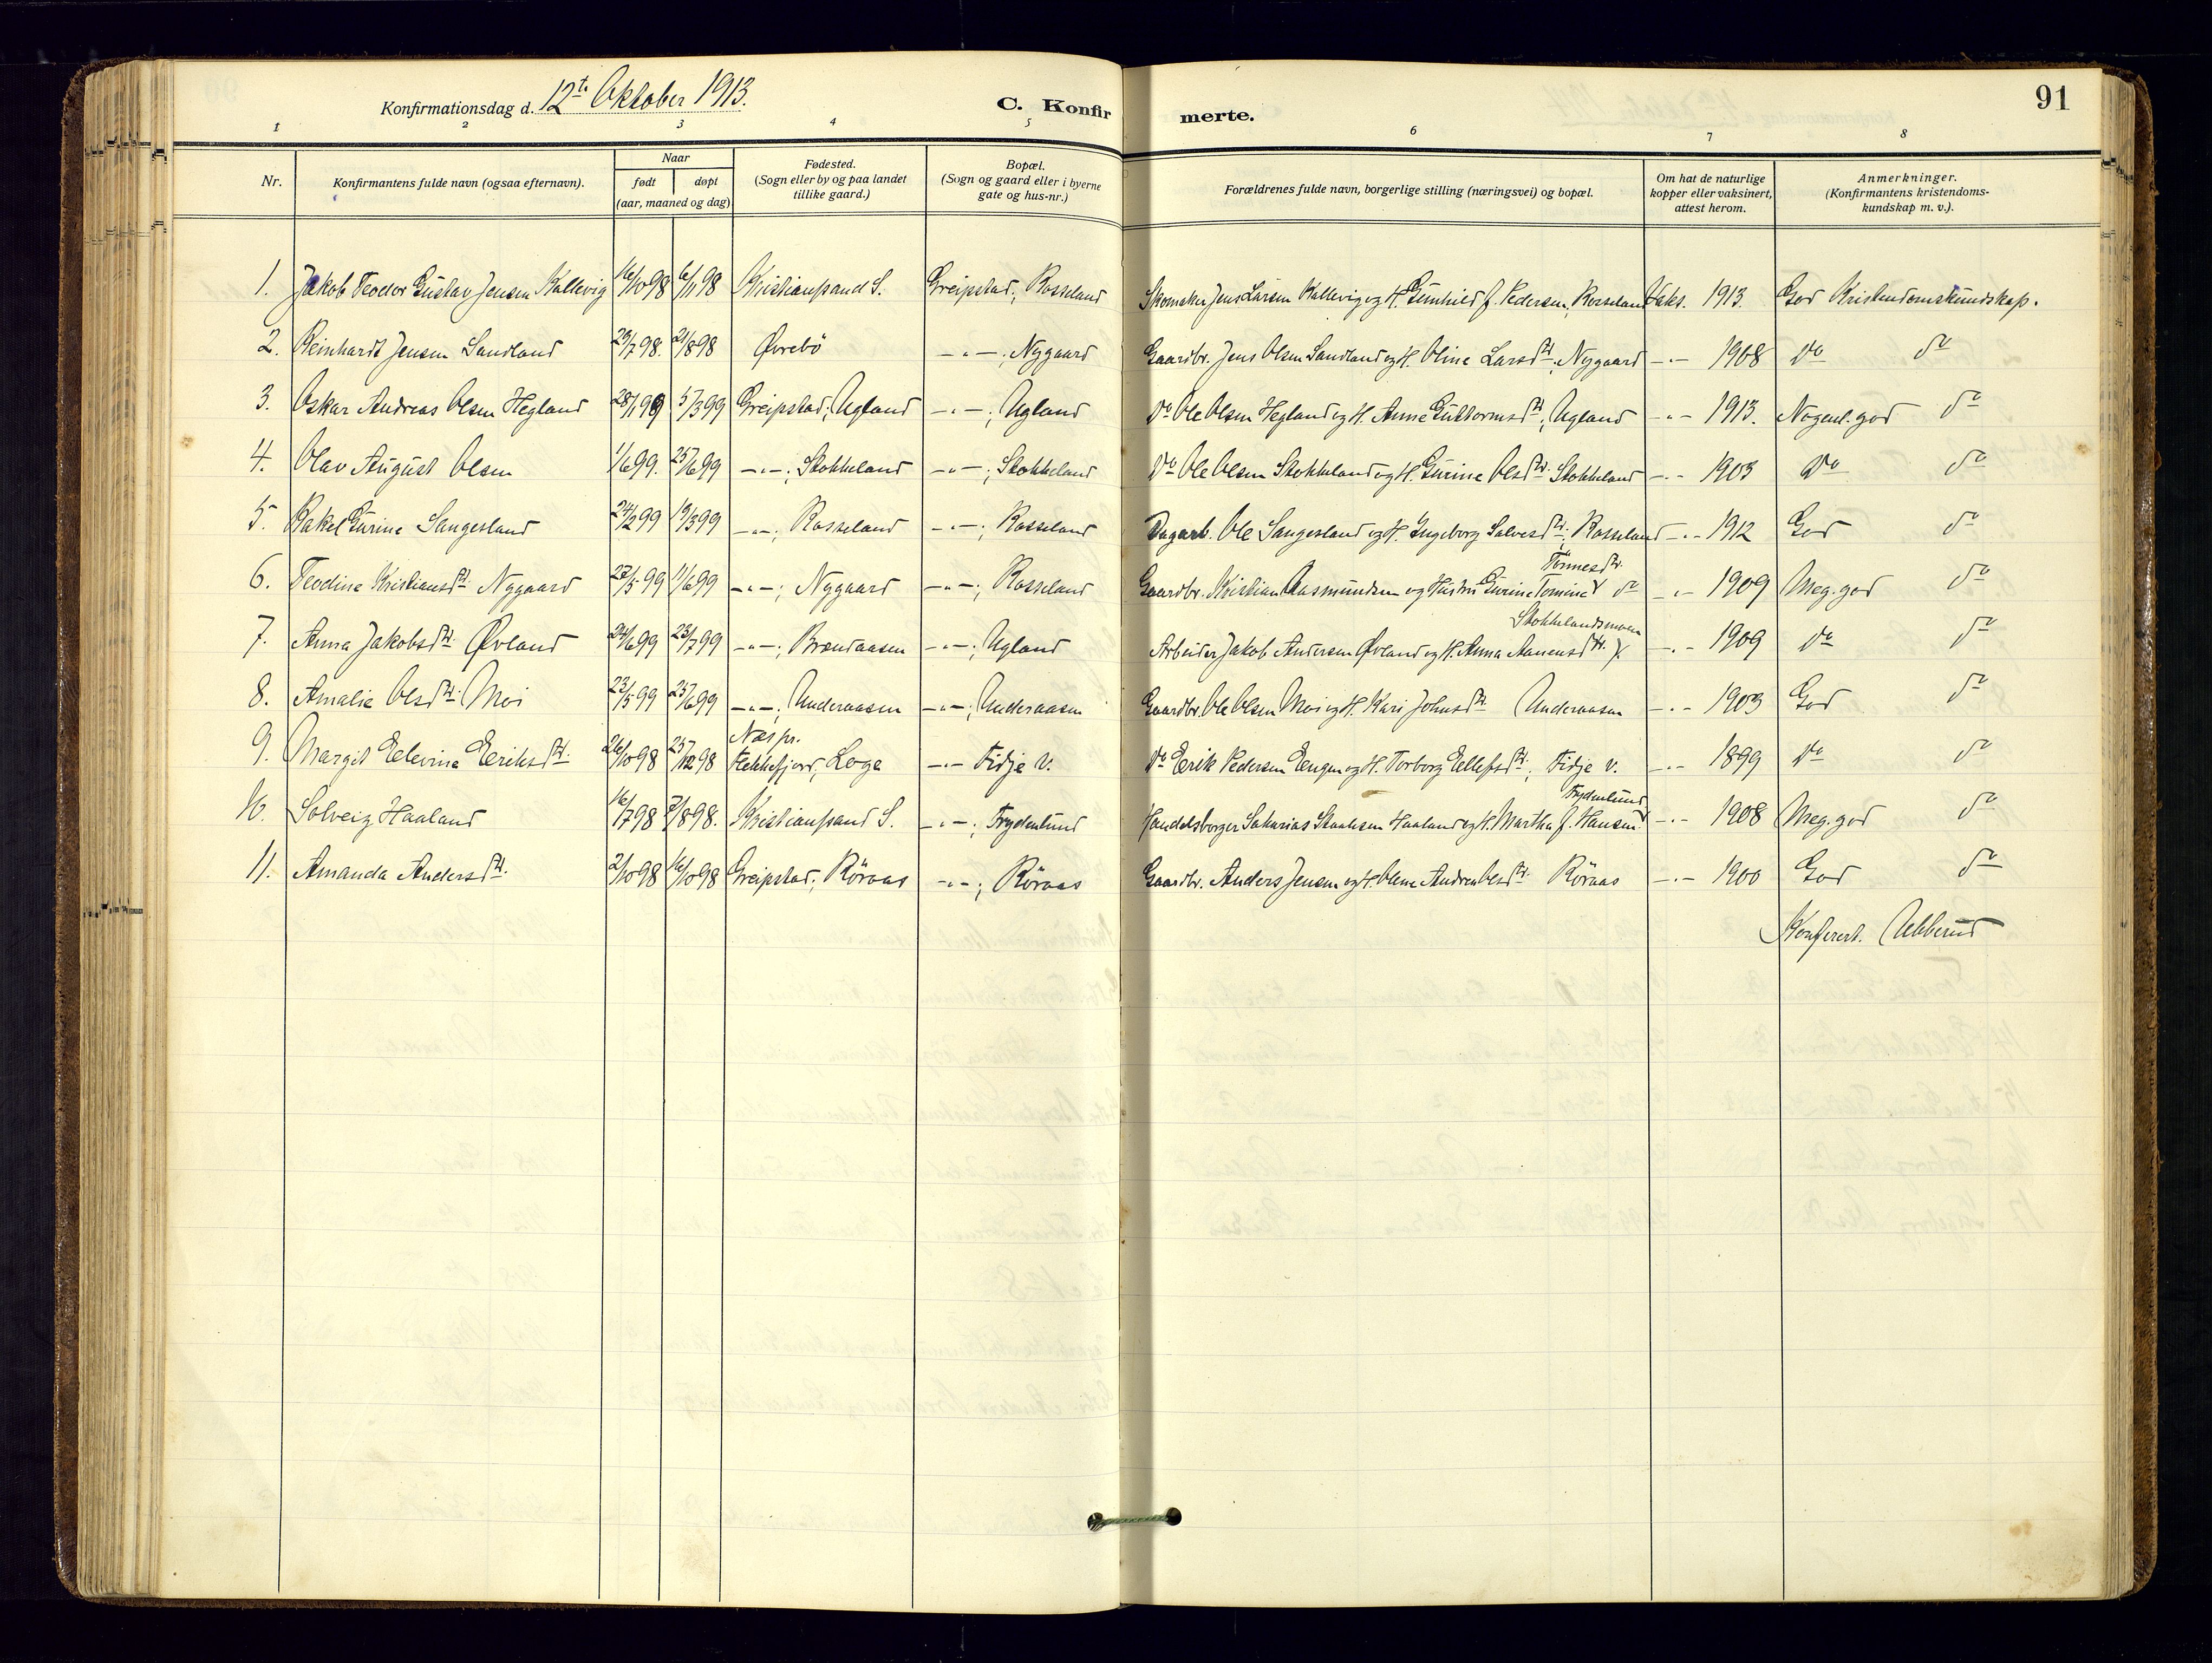 91
Konfirmationsdag d. 12te Oktober 1913. C. Konfirmerte.
1 2 3 4 5 6 7 8
Nr. Konfirmantens fulde navn (ogsaa efternavn). Naar født døpt (aar, maaned og dag) Fødested. (Sogn eller by og paa landet tillike gaard.) Bopæl. (Sogn og gaard eller i byerne gate og hus-nr.) Forældrenes fulde navn, borgerlige stilling (næringsvei) og bopæl. Om hat de naturlige kopper eller vaksinert, attest herom. Anmerkninger. (Konfirmantens kristendoms-kundskap m. v.).
1. Jakob Teodor Gustav Jensen Kallevig 16/10 98 6/11 98 Kristianssand S. Greipstad, Rosseland Skomaker Jens Larsen Kallevig og H. Gunhild f. Pedersen, Rosseland Vaks. 1913. God Kristendomskundskap.
2. Reinhardt Jensen Sandland 29/7 98. 21/8 98 Øvrebö -"-; Nygaard Gaardbr. Jens Olsen Sandland og H. Oline Larsdtr., Nygaard -"- 1908 Do do
3. Oskar Andreas Olsen Hegland 28/1 99 5/3 99 Greipstad; Ugland -"-; Ugland Do Ole Olsen Hegland og H. Anne Guttormsdtr., Ugland -"- 1913. Nogenl. god do
4. Olav August Olsen 1/6 99. 25/6 99 -"-; Stokkeland -"-; Stokkeland Do Ole Olsen Stokkeland og H. Gurine Olsdtr. Stokkeland -"- 1903 Do do
5. Rakel Gurine Sangesland 24/2 99 19/3 99 -"-; Rosseland -"-; Rosseland Dagarb. Ole Sangesland og H. Ingeborg Salvesdtr., Rosseland -"- 1912 God do
6. Teodine Kristiansdtr. Nygaard 27/5 99 11/6 99 -"-; Nygaard -"-; Rosseland Gaardbr. Kristian Rasmundsen og Hustru Gurine Tomine Tönnesdtr. do -"- 1909 Meg. god do
7. Anna Jakobsdtr. Øvland 24/6 99 23/7 99 -"-; Brændaasen -"-; Ugland Arbeider Jakob Andersen Øvland og H. Anna Aanensdtr. Stokkelandsmoen -"- 1909 Do do
8. Amalie Olsdtr. Moi 23/5 99 25/6 99 -"-; Underaasen -"-; Underaasen Gaardbr. Ole Olsen Moi og H. Kari Johnsdtr. Underaasen -"- 1903 God do
9. Margit Elevine Eeriksdtr. 26/10 98 25/12 98 Næs pr. Flekkefjord, Loga -"- Fidje v. Do Eerik Pedersen Eengen og H. Torborg Eellefsdtr., Fidje v. -"- 1899 Do do
10. Solveig Haaland 16/7 98 7/8 98. Kristianssand S. -"-; Frydenlund Handelsborger Sakarias Isaaksen Haaland og H. Martha f. Hansen Frydenlund -"- 1908 Meg. god do
11. Amanda Andersdtr. 2/10 98 16/10 98 Greipstad; Röraas -"-; Röraas Gaardbr. Anders Jensen og H. Olene Andrea Olsdtr. Röraas -"- 1900 God do
Konferert. Ubberud